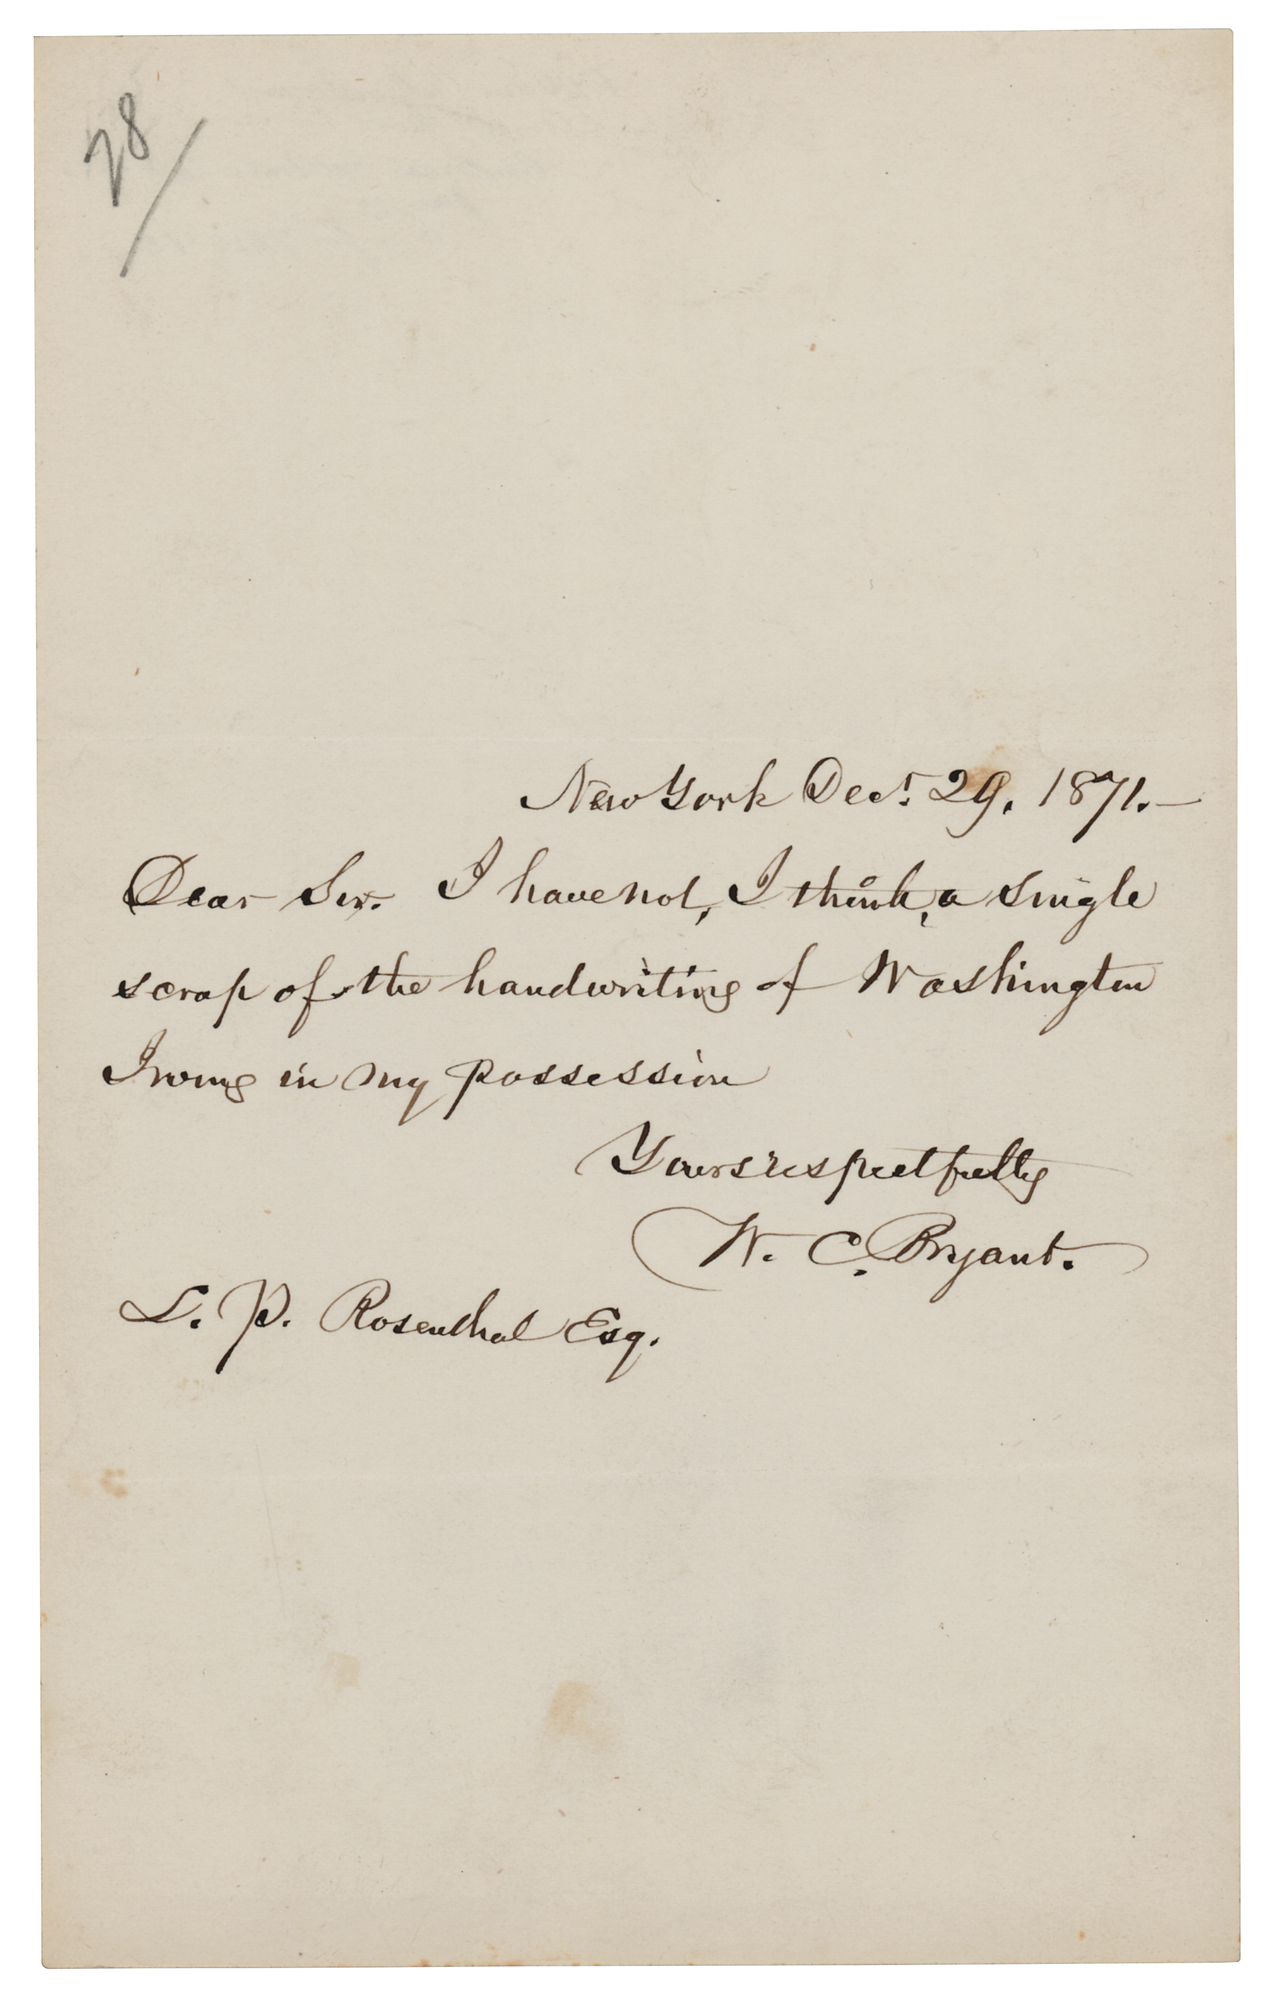 28/
New York Decr. 29. 1871.—
Dear Sir. I have not, I think, a single
scrap of the handwriting of Washington
Irving in my possession
Yours respectfully
W. C. Bryant.
L. P. Rosenthal Esq.